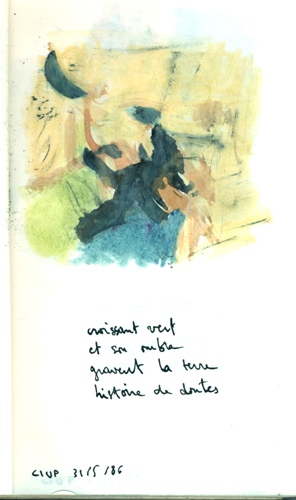 croissant vert
et son ombre
gravent la terre
histoire de doutes
CIUP 31/5/86